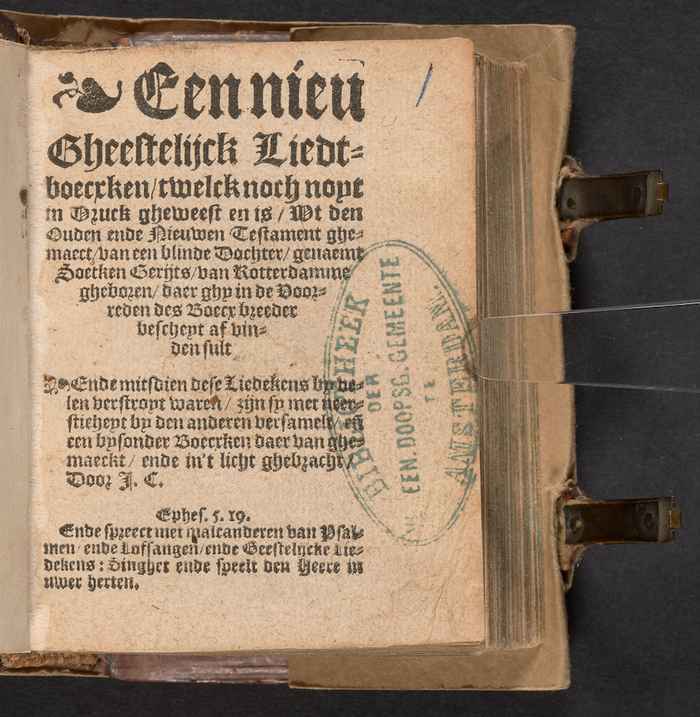 Een nieu
Gheestelijck Liedt-
boecxken/twelck noch noyt
in Druck gheweest en is / Wt den
Ouden ende Nieuwen Testament ghe-
maect/van een blinde Dochter/ genaemt
Soetken Gerijts/van Rotterdamme
gheboren/ daer ghy in de Voor-
reden des Boecx breeder
bescheyt af vin-
den sult
Ende mitsdien dese Liedekens by ve-
len verstroyt waren/ zijn sy met neer-
sticheyt by den anderen versamelt/
een bysonder Boecxken daer van ghe
maeckt/ ende in't licht ghebracht/
Door J. C.
Ephes. 5. 19.
Ende spreect met malcanderen van Psal-
men/ende Lofsangen/ende Geestelijcke Lie-
dekens: Singhet ende speelt den Heere in
uwer herten.
BIBLIOTHEEK
DER
VEREEN. DOOPSG. GEMEENTE
TE
AMSTERDAM.